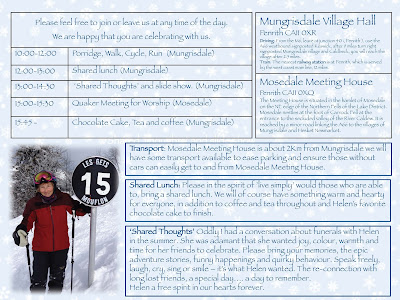 Please feel free to join or leave us at any time of the day.
We are happy that you are celebrating with us.
10:00-12:00 Porridge, Walk, Cycle, Run (Mungrisdale)
12:00-13:00 Shared lunch (Mungrisdale)
13:00-14:30 'Shared Thoughts' and slide show. (Mungrisdale)
15:00-15:30 Quaker Meeting for Worship (Mosedale)
15:45 - Chocolate Cake, Tea and coffee (Mungrisdale)
Mungrisdale Village Hall
Penrith CA11 0XR
Train: The nearest railway station is at Penrith, which is served
Mosedale Meeting House
Penrith CA11 0XQ
The Meeting House is situated in the hamlet of Mosedale
on the NE edge of the Northern Fells of the Lake District.
Mosedale nestles at the foot of Carrock Fell at the
entrance to the secluded valley of the River Caldew. It is
reached by a minor road linking the A66 to the villages of
Mungrisdale and Hesket Newmarket.
Transport: Mosedale Meeting House is about 2Km from Mungrisdale we will
have some transport available to ease parking and ensure those without
cars can easily get to and from Mosedale Meeting House.
Shared Lunch: Please in the spirit of 'live simply' would those who are able
to, bring a shared lunch. We will of course have something warm and hearty
for everyone, in addition to coffee and tea throughout and Helen's favorite
chocolate cake to finish.
'Shared Thoughts' Oddly I had a conversation about funerals with Helen
in the summer. She was adamant that she wanted joy, colour, warmth and
time for her friends to celebrate. Please bring your memories, the epic
adventure stories, funny happenings and quirky behaviour. Speak freely,
laugh, cry, sing or smile – it's what Helen wanted. The re-connection with
long lost friends, a special day..... a day to remember.
Helen a free spirit in our hearts forever.
LES GETS
15
MOUFLON